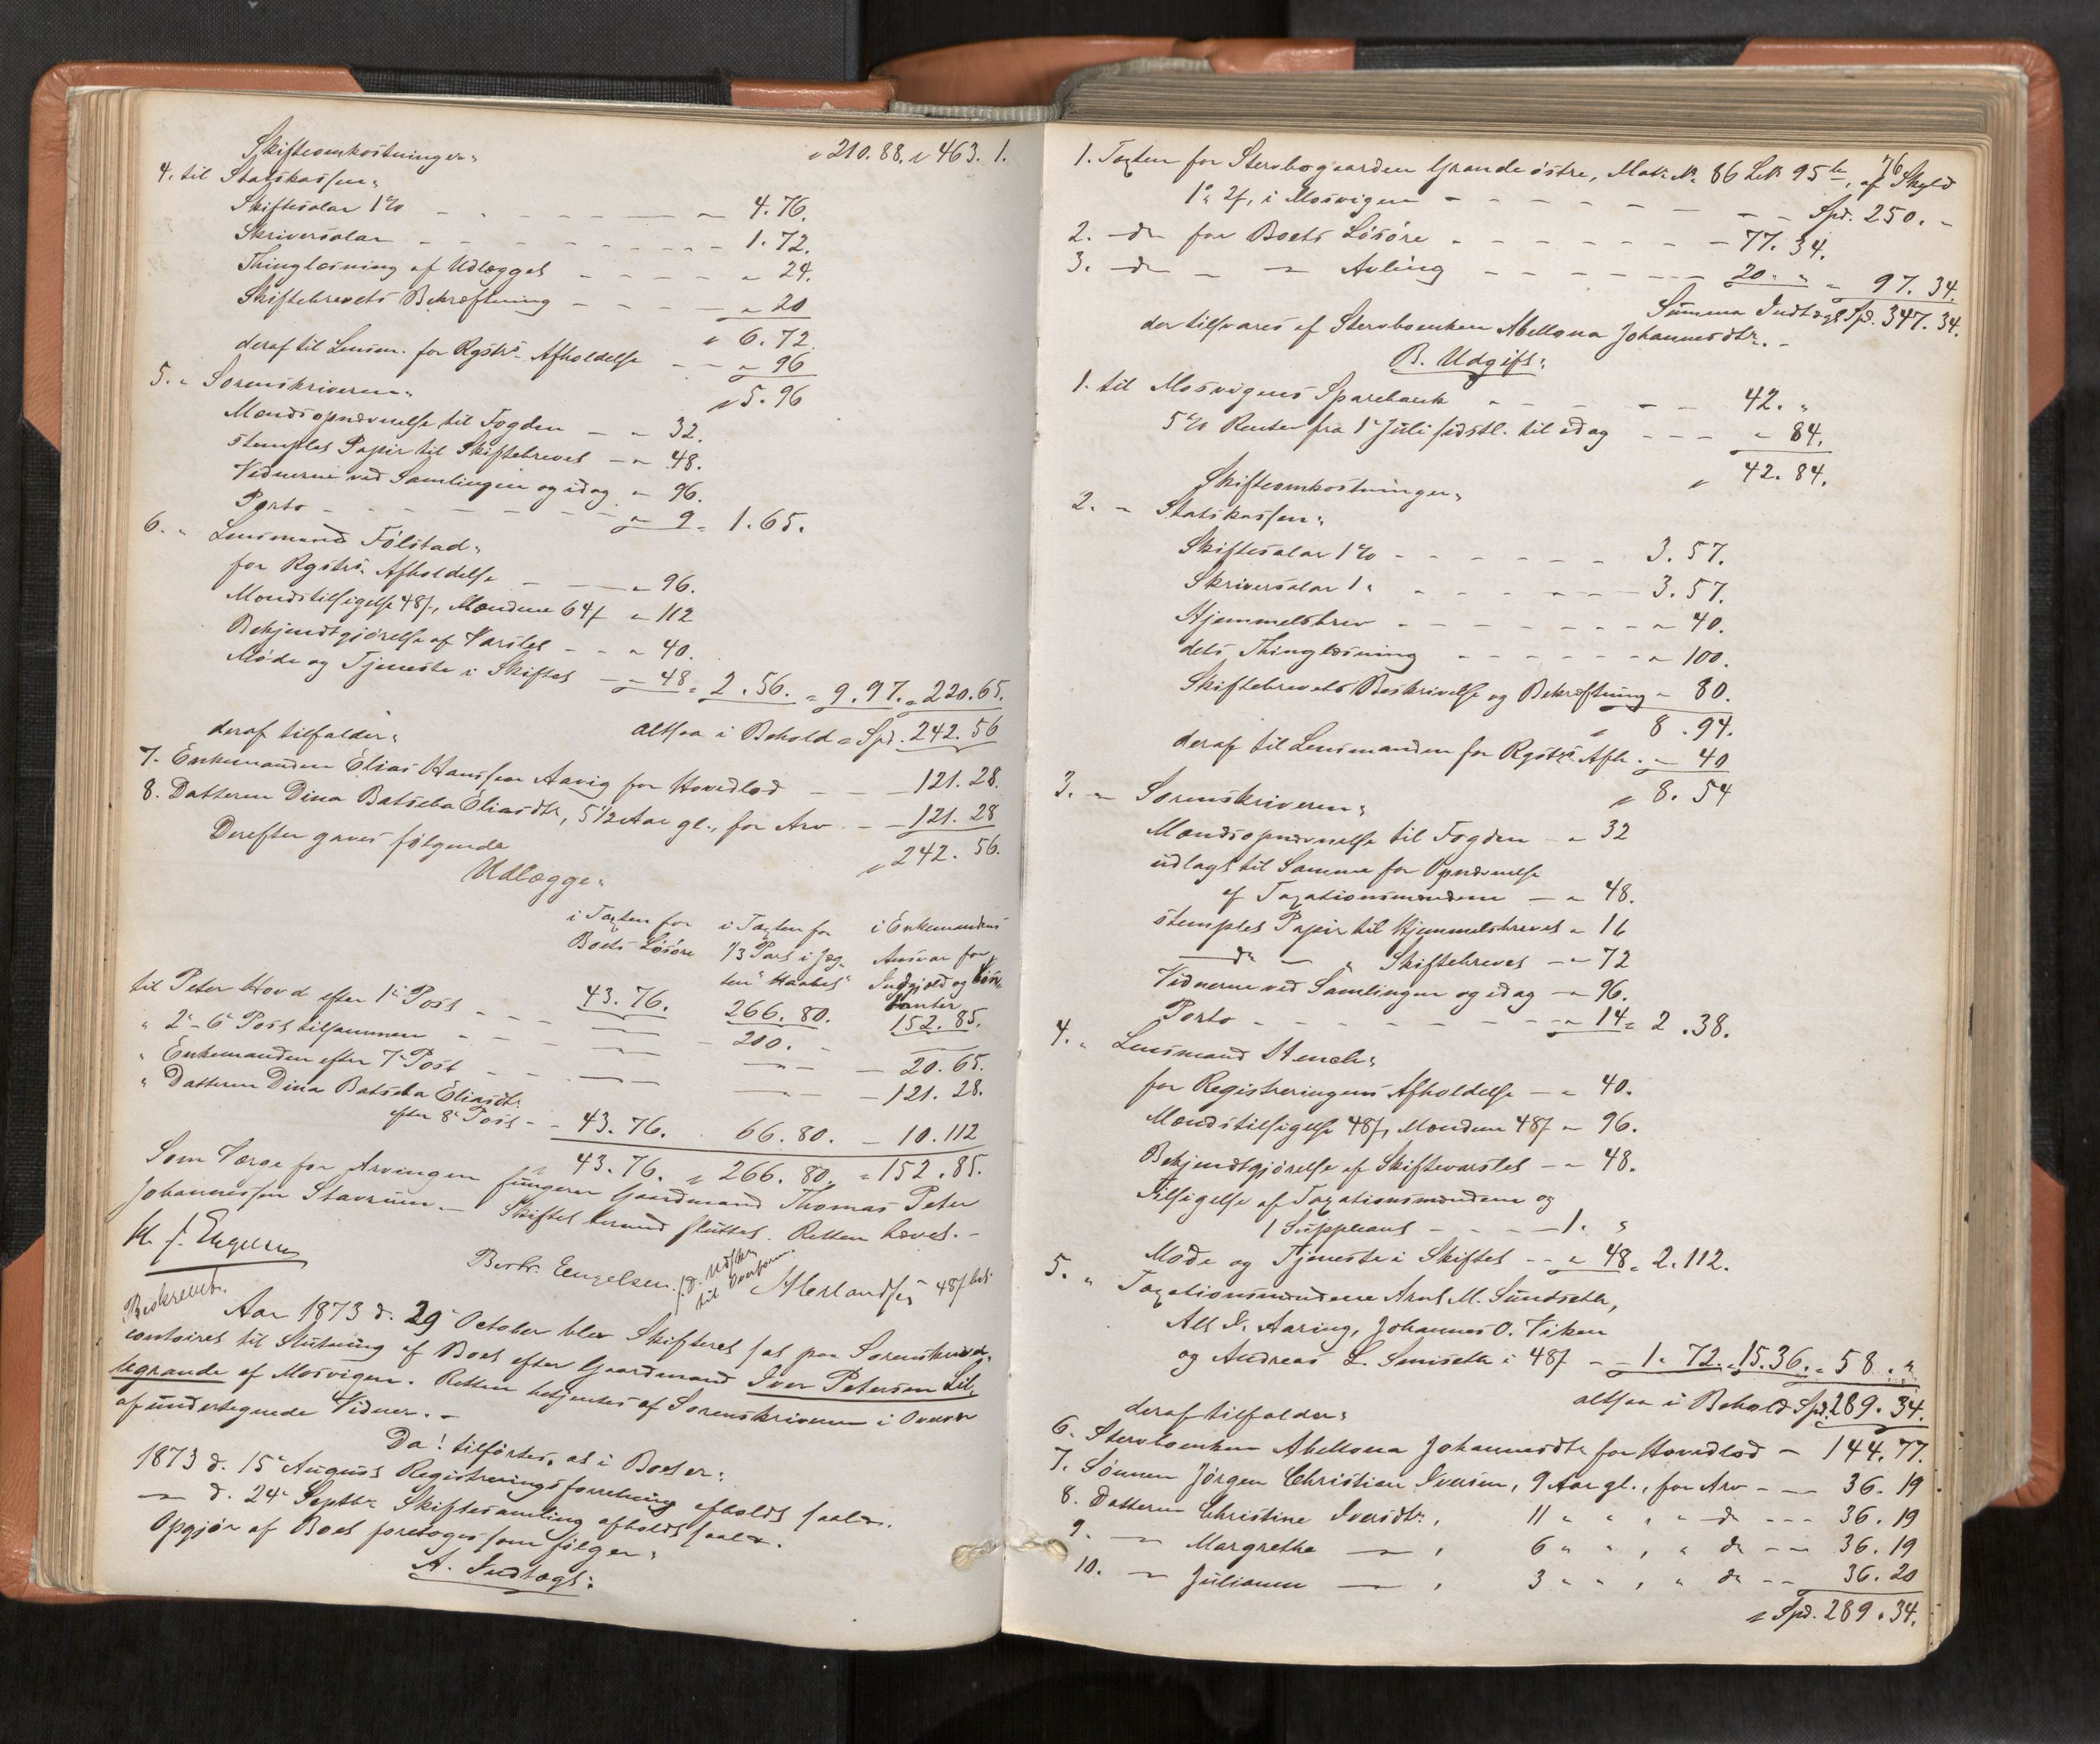 Skifteomkostninger: „ 210. 88. „ 463. 1.
4. til Statskassen:
Skiftesalar 1% - - - 4. 76.
Skriversalar - - - 1. 72.
Thinglæsning af Udlægget - - - „ 24.
Skiftebrevets Bekræftning - - - „ 20
„ 6. 72.
deraf til Lensm. for Rgstrs Afholdelse - - „ 96
„ 5. 96
5. „ Sorenskriveren:
Mændsopnævnelse til Fogden - „ 32.
stemplet Papir til Skiftebrevet - „ 48.
Vidnerne ved Samlingen og idag „ 96.
Porto - - - „ 9 = 1. 65.
6. „ Lensmand Fölstad:
for Rgstrs Afholdelse - - „ 96.
Mændstilsigelse 48ß, Mændene 64ß „ 112
Bekjendtgjörelse af Varslet - - „ 40.
Möde og Tjeneste i Skiftet - „ 48 = 2. 56. = 9. 97. = 220. 65.
altsaa i Behold = Spd. 242. 56
deraf tilfalder:
7. Enkemanden Elias Hanssen Aavig for Hovedlod - - 121. 28.
8. Datteren Dina Batseba Eliasdtr, 5 1/2 Aar gl., for Arv - - 121. 28
„ 242. 56.
Derefter gaves følgende
Udlægge:
i Taxten for i Taxten for i Enkemandens
Boets Lösöre 1/3 Part i Jæg- Ansvar for
ten "Haabet" Indgjæld og
152. 85.
til Peter Hovd efter 1ste Post - - - 43. 76. 266. 80.
„ 2den - 6te Post tilsammen - - - 200. - 20. 65.
„ Enkemanden efter 7de Post - - - 121. 28.
„ Datteren Dina Batseba Eliasdtr
efter 8de Post - - 43. 76. 66. 80. - 10. 112
43. 76. „ 266. 80. = 152. 85.
Som Værge for Arvingen fungerer Gaardmand Thomas Peter
Johannessen Stavrum. - Skiftet hermed sluttet. Retten hævet. -
H. J. Engelsen
Berhr. Eengelsen.
Beskrevet.
Aar 1873 d. 29 October blev Skifteret sat paa Sorenskriver-
contoiret til Slutning af Boet efter Gaardmand Iver Petersen Lil-
legrande af Mosvigen. Retten betjentes af Sorenskriveren i Overvær
af undertegnede Vidner. -
Da! tilførtes, at i Boet er:
1873 d. 15de August Registreringsforretning afholdt saal.
- d. 24de Septbr Skiftesamling afholdt saal.
Opgjör af Boet foretoges som følger:
A. Indtægt:
76
1. Taxten for Stervbogaarden Grande östre, Matr. No 86 Lb. 95b, af Skyld
1 „ 2ß, i Mosvigen - - - Spd. 250. -
2. do for Boets Lösöre - - - 77. 34.
3. do - - Avling - - - 20. „ = 97. 34.
Summa Indtægt Spd. 347. 34.
der tilsvares af Stervboenken Abellona Johannesdtr. -
B. Udgift:
1. til Mosvigens Sparebank - - - 42. „
5% Renter fra 1ste Juli sidstl. til idag - - - „ 84.
„ 42. 84.
Skifteomkostninger:
2. „ Statskassen:
Skiftesalar 1% - - - 3. 57.
Skriversalar 1 „ - - - 3. 57.
Hjemmelsbrev - - - „ 40.
dets Thinglæsning - - - „ 100.
Skiftebrevets Beskrivelse og Bekræftning „ 80.
„ 8. 94.
deraf til Lensmanden for Rgstrs Afh. „ 40
„ 8. 54
3. „ Sorenskriveren:
Mændsopnævnelse til Fogden - „ 32
udlagt til Samme for Opnævnelse
af Taxationsmændene - „ 48.
stemplet Papir til Hjemmelsbrevet „ 16
do - „ Skiftebrevet - „ 72
Vidnerne ved Samlingen og idag - „ 96.
Porto - - - „ 14 = 2. 38.
4. „ Lensmand Stench:
for Registreringens Afholdelse - „ 40.
Mændstilsigelse 48ß, Mændene 48ß „ 96.
Bekjendtgjörelse af Skiftevarslet - „ 48.
Tilsigelse af Taxationsmændene og
1 Suppleant - - - 1. „
Möde og Tjeneste i Skiftet - - „ 48 = 2. 112.
5. „ Taxationsmændene Arnt M. Sundseth,
Alb. I. Aaring, Johannes O. Viken
og Andreas L. Smiseth i 48ß - - 1. 72. = 15. 36. = 58. „
altsaa i Behold Spd. 289. 34.
deraf tilfalder:
6. Stervboenken Abellona Johannesdtr for Hovedlod - 144. 77.
7. Sönnen Jørgen Christian Iversen, 9 Aar gl., for Arv - - 36. 19
8. Datteren Christine Iversdtr, 11 „ „ , „ do - - - 36. 19
9. - Margrethe - , 6 „ „ , „ do - - 36. 19
10. - Julianne - , 3 „ „ , „ do - - 36. 20
„ Spd. 289. 34.